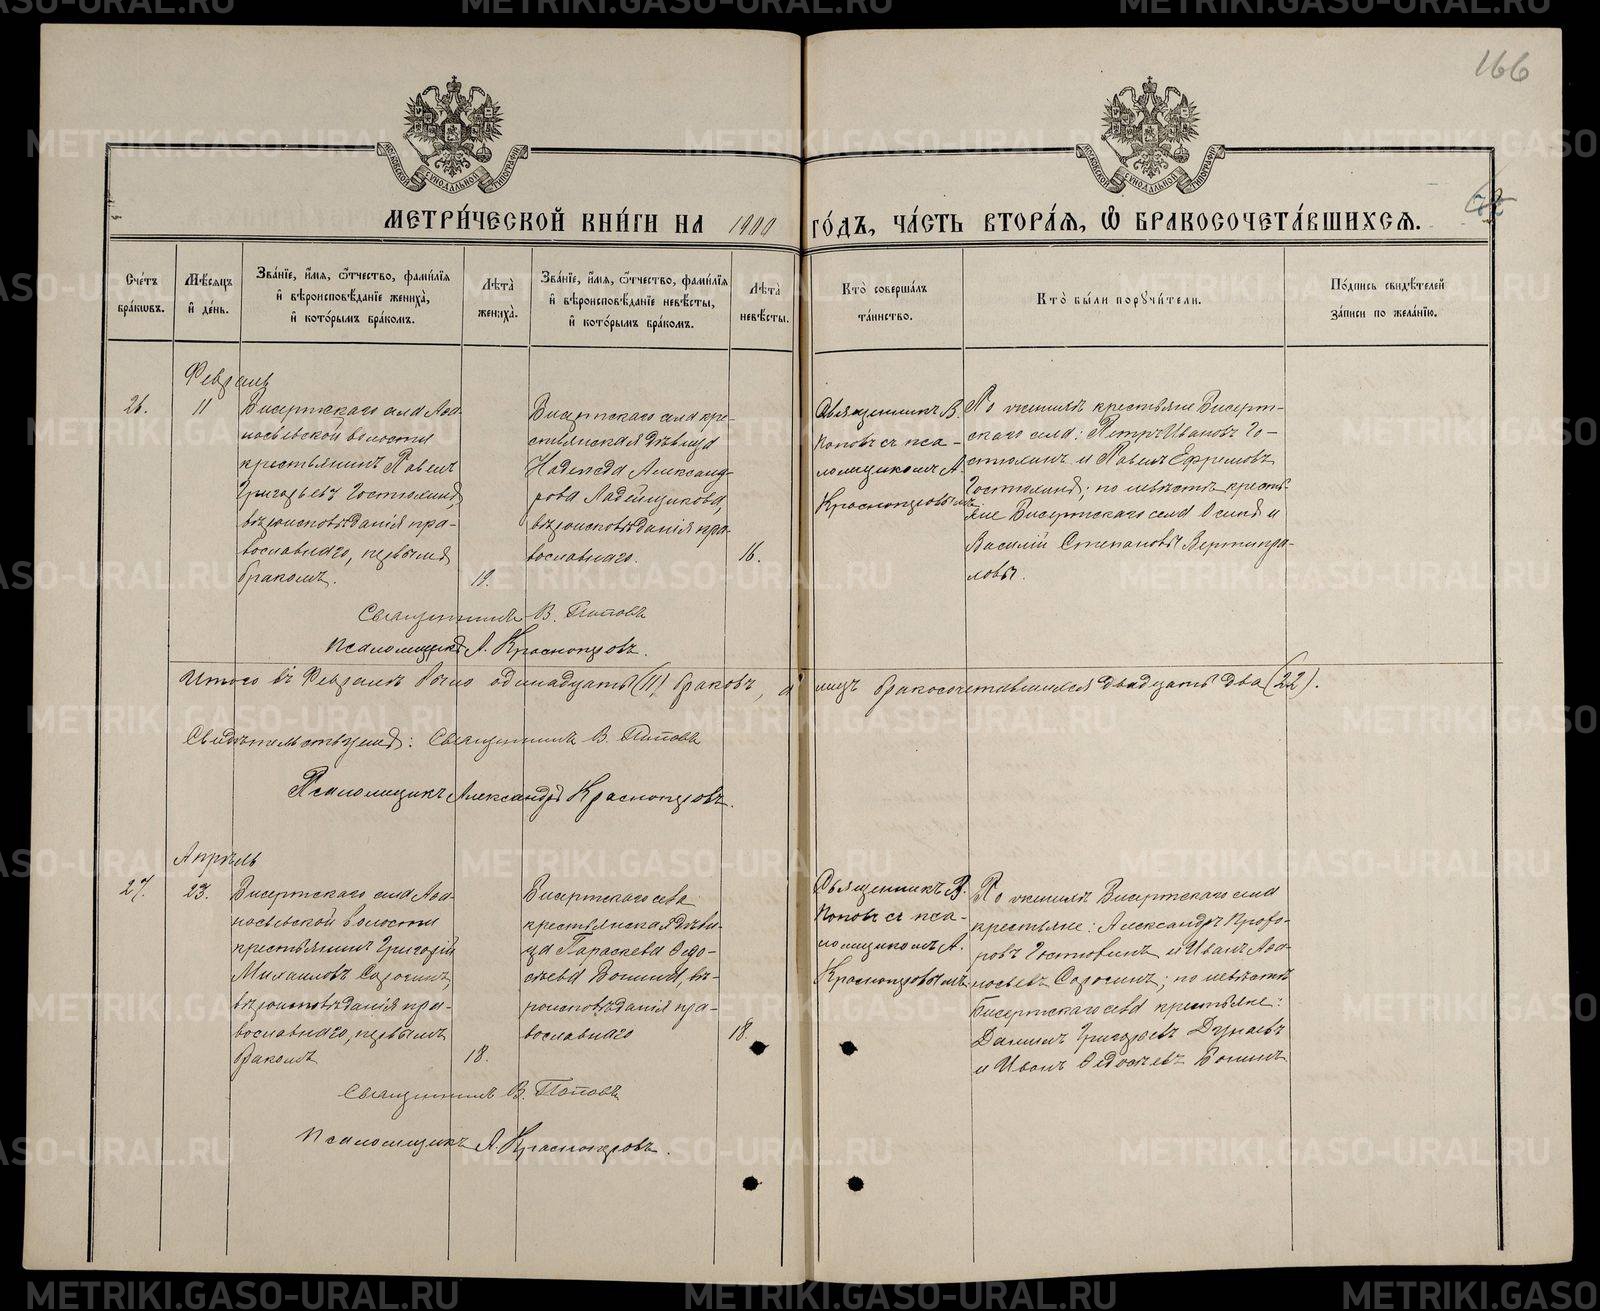 166
МОСКОВСКОЙ СѴНОДАЛЬНОЙ ТИПОГРАФІИ
МОСКОВСКОЙ СѴНОДАЛЬНОЙ ТИПОГРАФІИ
МЕТРИ́ЧЕСКОЙ КНИ́ГИ НА 1900 ГО́ДЪ, ЧА́СТЬ ВТОРА́Я, Ѽ БРАКОСОЧЕТА́ВШИХСЯ.
Сче́тъ бра́ковъ.
Мѣ́сяцъ и҆ де́нь.
Зва́нїе, и҆́мя, ѻ҆́тчество, фами́лїя и҆ вѣроисповѣ́данїе жениха̀, и҆ кото́рымъ бра́комъ.
Лѣта̀ жениха̀.
Зва́нїе, и҆́мя, ѻ҆́тчество, фами́лїя и҆ вѣроисповѣ́данїе невѣ́сты, и҆ кото́рымъ бра́комъ.
Лѣта̀ невѣ́сты.
Кто̀ соверша́лъ та́инство.
Кто̀ бы́ли порꙋчи́тели.
По́дпись свидѣ́телей за́писи по жела́нїю.
Февраль
26.
11
Бисертскаго села Аѳа-
насьевской волости
крестьянинъ Павелъ
Григорьевъ Гостюхинъ,
вѣроисповѣданія пра-
вославнаго, первымъ
бракомъ.
19.
Бисертскаго села кре-
стьянская дѣвица
Надежда Александ-
рова Ладейщикова,
вѣроисповѣданія пра-
вославнаго.
16.
Священникъ В.
Поповъ съ пса-
ломщикомъ А.
Красноперовымъ
По женихѣ крестьяне Бисерт-
скаго села: Петръ Ивановъ Го-
стюхинъ и Павелъ Ефремовъ
Гостюхинъ; по невѣстѣ кресть-
яне Бисертскаго села Осипъ и
Василій Степановы Вертипра-
ховы.
Священникъ В. Поповъ
Псаломщикъ А. Красноперовъ.
Итого въ Февралѣ было одинадцать (11) браковъ, а лицъ бракосочетавшихся двадцать два (22).
Свидѣтельствуемъ: Священникъ В. Поповъ
Псаломщикъ Александръ Красноперовъ.
Апрѣль
27.
23.
Бисертскаго села Аѳа-
насьевской волости
крестьянинъ Григорій
Михаиловъ Сорогинъ,
вѣроисповѣданія пра-
вославнаго, первымъ
бракомъ
18.
Бисертскаго села
крестьянская дѣви-
ца Параскева Ѳедо-
сѣева Вонина, вѣ-
роисповѣданія пра-
вославнаго
18.
Священникъ В.
Поповъ съ пса-
ломщикомъ А.
Красноперовымъ
По женихѣ Бисертскаго села
крестьяне: Александръ Прохо-
ровъ и Иванъ Аѳа-
насьевъ Сорогинъ; по невѣстѣ
Бисертскаго села крестьяне:
Даніилъ Григорьевъ Дунаевъ
и Иванъ Ѳедосѣевъ Вонинъ
Священникъ В. Поповъ
Псаломщикъ А. Красноперовъ.
METRIKI.GASO-URAL.RU